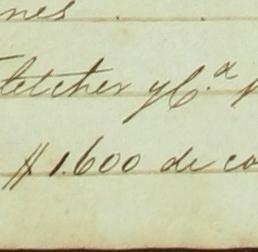 nes .
Fletcher y C.ª
$ 1.600 de co